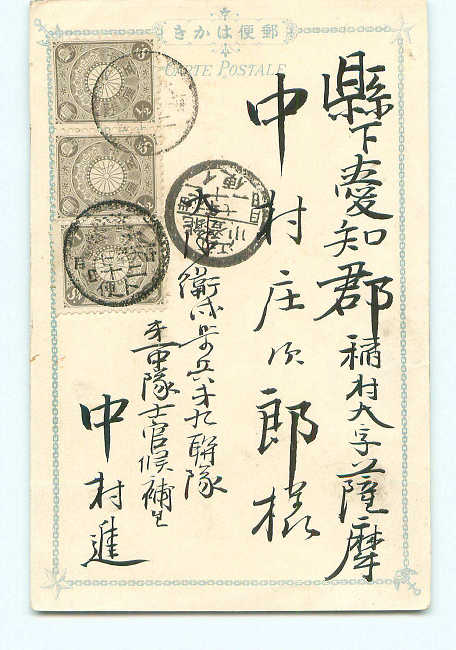 郵便はかき
CARTE POSTALE
縣下愛知郡稲村大字薩摩
中村庄次郎様
大津衛戍歩兵才九聯隊
才一中隊士官候補生
中村進